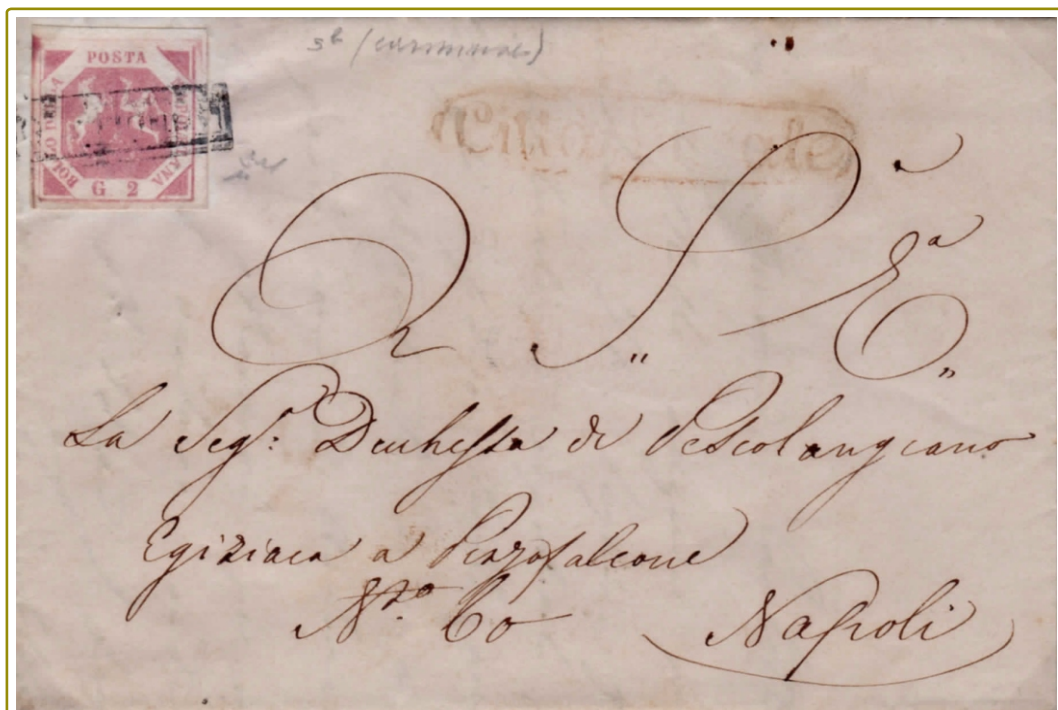 POSTA
BOLLO DELLA
G 2
A S. E.
La Sig.ª Duchessa di Pescolangiano
Egiziaca a Pizzofalcone
N.ro 60
Napoli